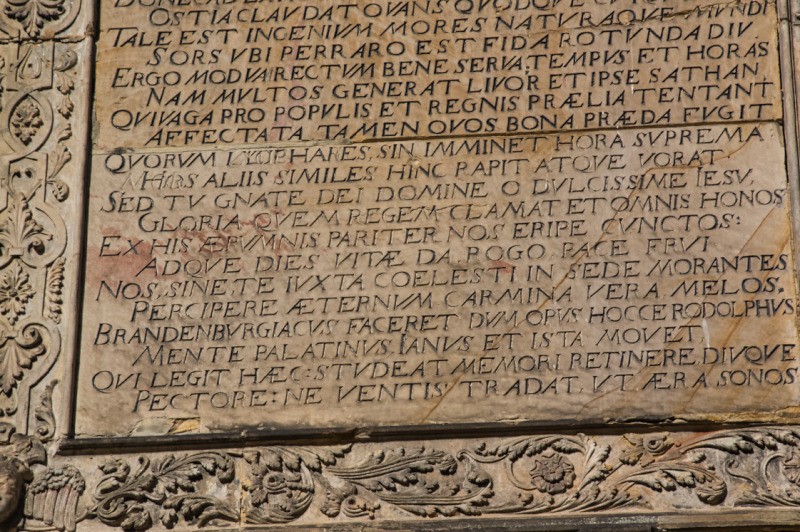 OSTIA CLAVDAT OVANS QVODQVE
TALE EST INGENIVM MORES NATVRAQVE MVNDI
SORS VBI PERRARO EST FIDA ROTVNDA DIV
ERGO MODVM RECTVM BENE SERVA, TEMPVS ET HORAS
NAM MVLTOS GENERAT LIVOR ET IPSE SATHAN
QVI VAGA PRO POPVLIS ET REGNIS PRÆLIA TENTANT
AFFECTATA TAMEN QVOS BONA PRÆDA FVGIT
QVORVM HARES, SIN IMMINET HORA SVPREMA
MORS ALIIS SIMILES HINC RAPIT ATQVE VORAT
SED TV GNATE DEI DOMINE O DVLCISSIME IESV,
GLORIA QVEM REGEM CLAMAT ET OMNIS HONOS
EX HIS ÆRVMNIS PARITER NOS ERIPE CVNCTOS:
ADQVE DIES VITÆ DA ROGO PACE FRVI
NOS, SINE TE IVXTA COELESTI IN SEDE MORANTES
PERCIPERE ÆTERNVM CARMINA VERA MELOS.
BRANDENBVRGIACVS FACERET DVM OPVS HOCCE RODOLPHVS
MENTE PALATINVS. IANVS ET ISTA MOVET,
QVI LEGIT HÆC: STVDEAT MEMORI RETINERE DIVQVE
PECTORE: NE VENTIS TRADAT, VT ÆRA SONOS